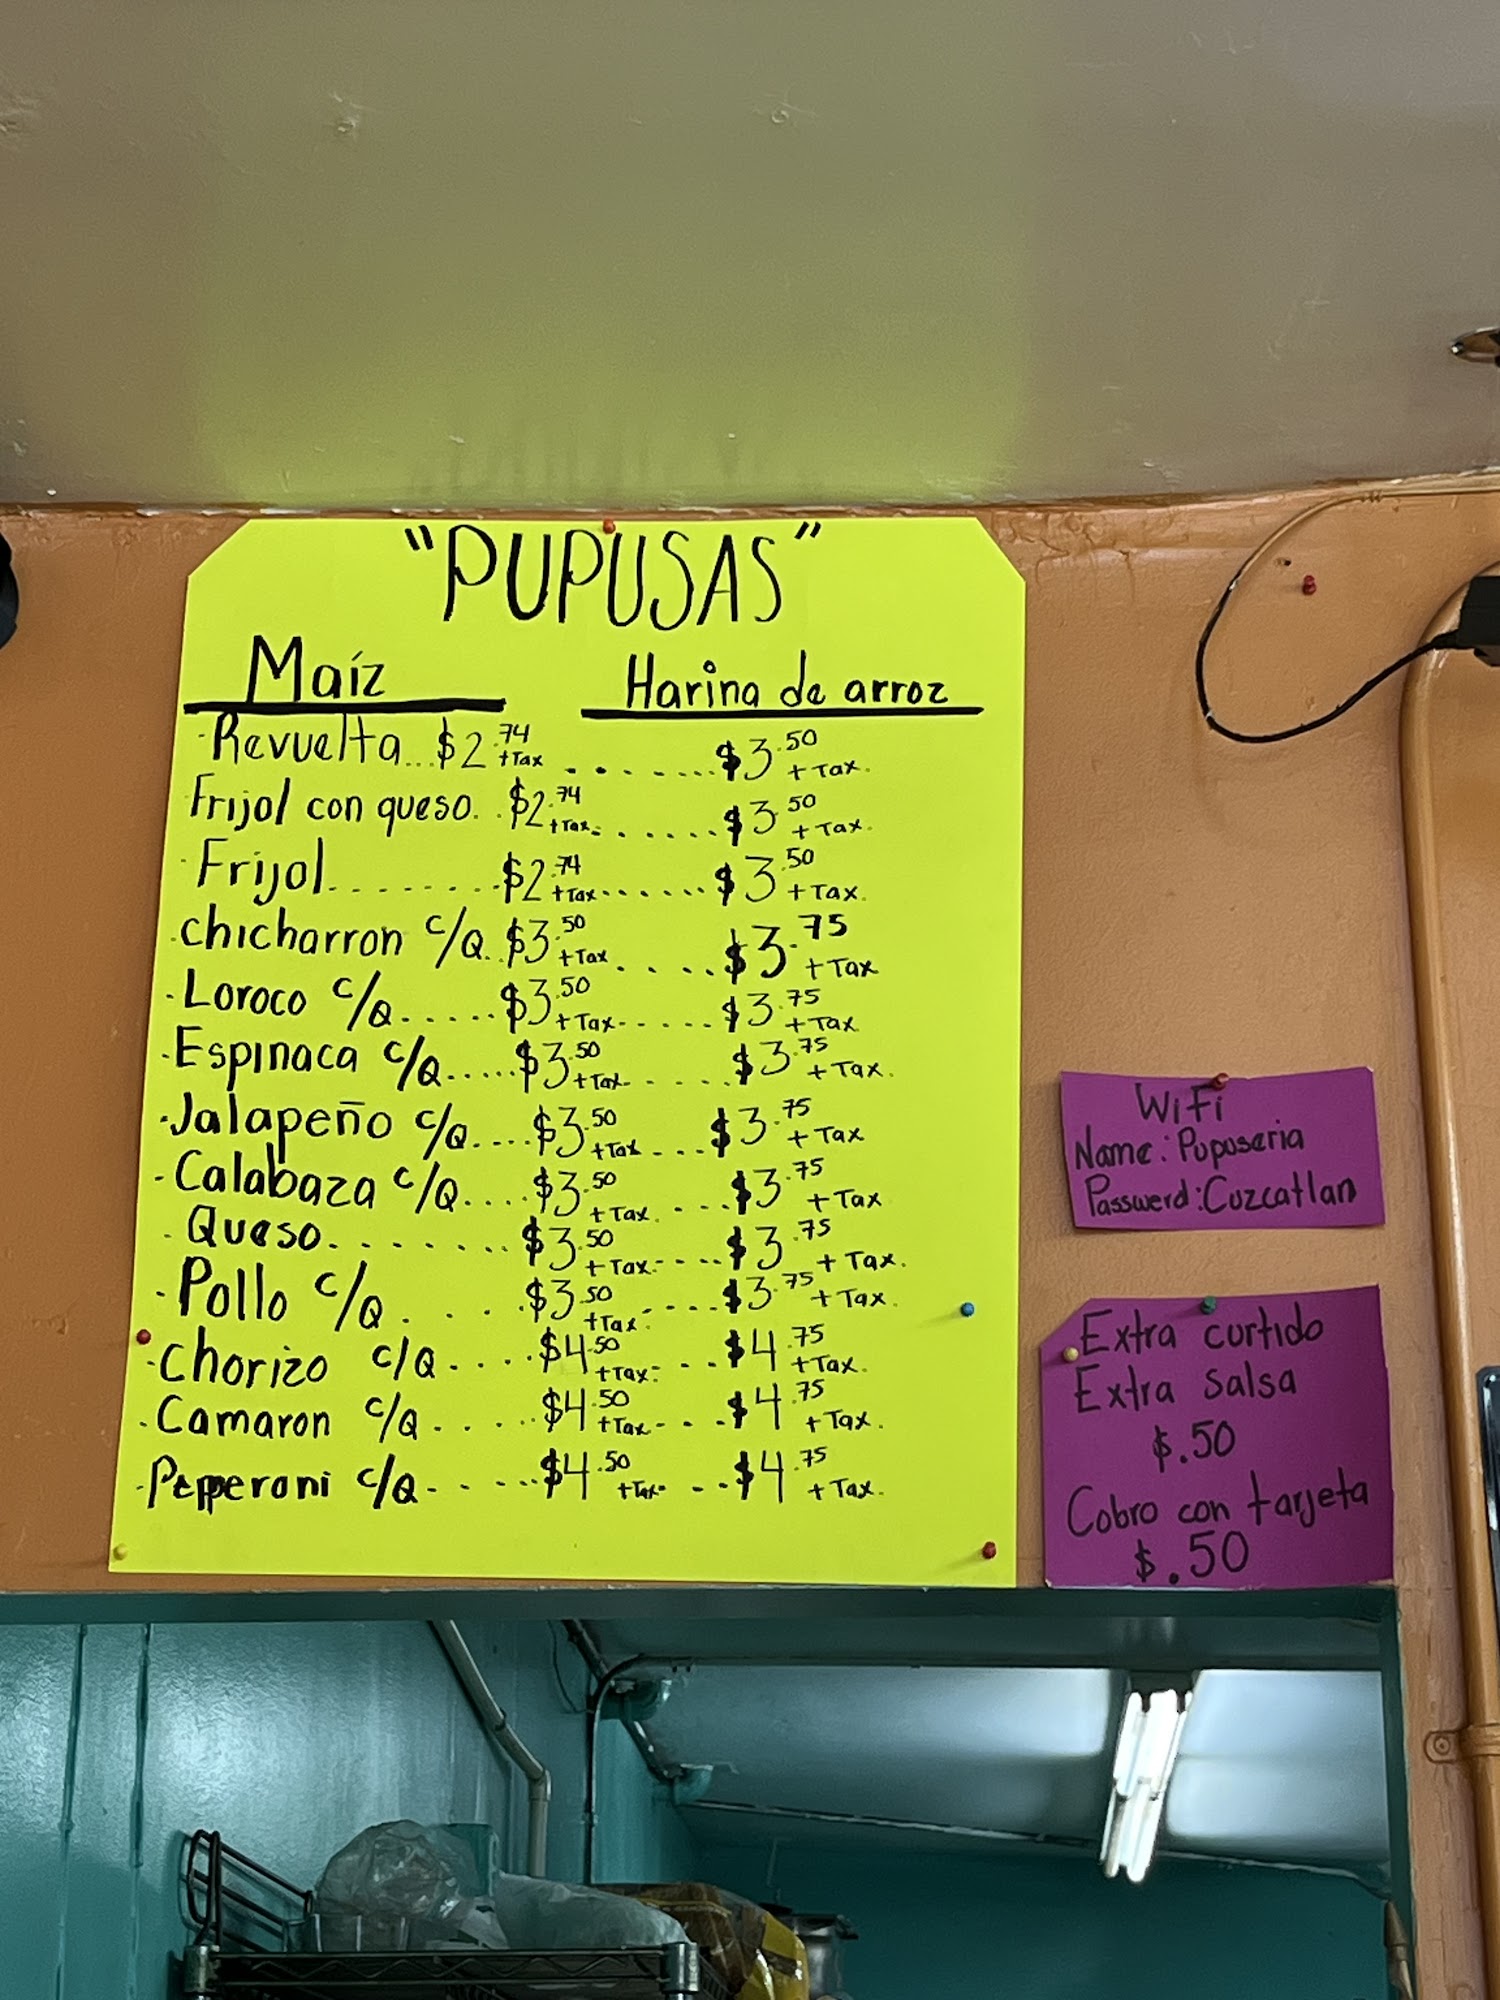 "PUPUSAS"
Maíz Harina de arroz
·Revuelta...$2.74 +Tax.......$3.50 +Tax.
Frijol con queso...$2.74 +Tax.......$3.50 +Tax.
·Frijol.........$2.74 +Tax......$3.50 +Tax.
·chicharron c/Q..$3.50 +Tax.....$3.75 +Tax
·Loroco c/Q.....$3.50 +Tax......$3.75 +Tax
·Espinaca c/Q.....$3.50 +Tax.....$3.75 +Tax.
·Jalapeño c/Q....$3.50 +Tax....$3.75 +Tax
·Calabaza c/Q....$3.50 +Tax....$3.75 +Tax
·Queso........$3.50 +Tax....$3.75 +Tax.
·Pollo c/Q....$3.50 +Tax.....$3.75 +Tax.
·Chorizo c/Q....$4.50 +Tax...$4.75 +Tax.
·Camaron c/Q....$4.50 +Tax...$4.75 +Tax.
·Pepperoni c/Q.....$4.50 +Tax...$4.75 +Tax.
WiFi
Name: Pupuseria
Password: Cuzcatlan
Extra curtido
Extra salsa
$.50
Cobro con tarjeta
$.50